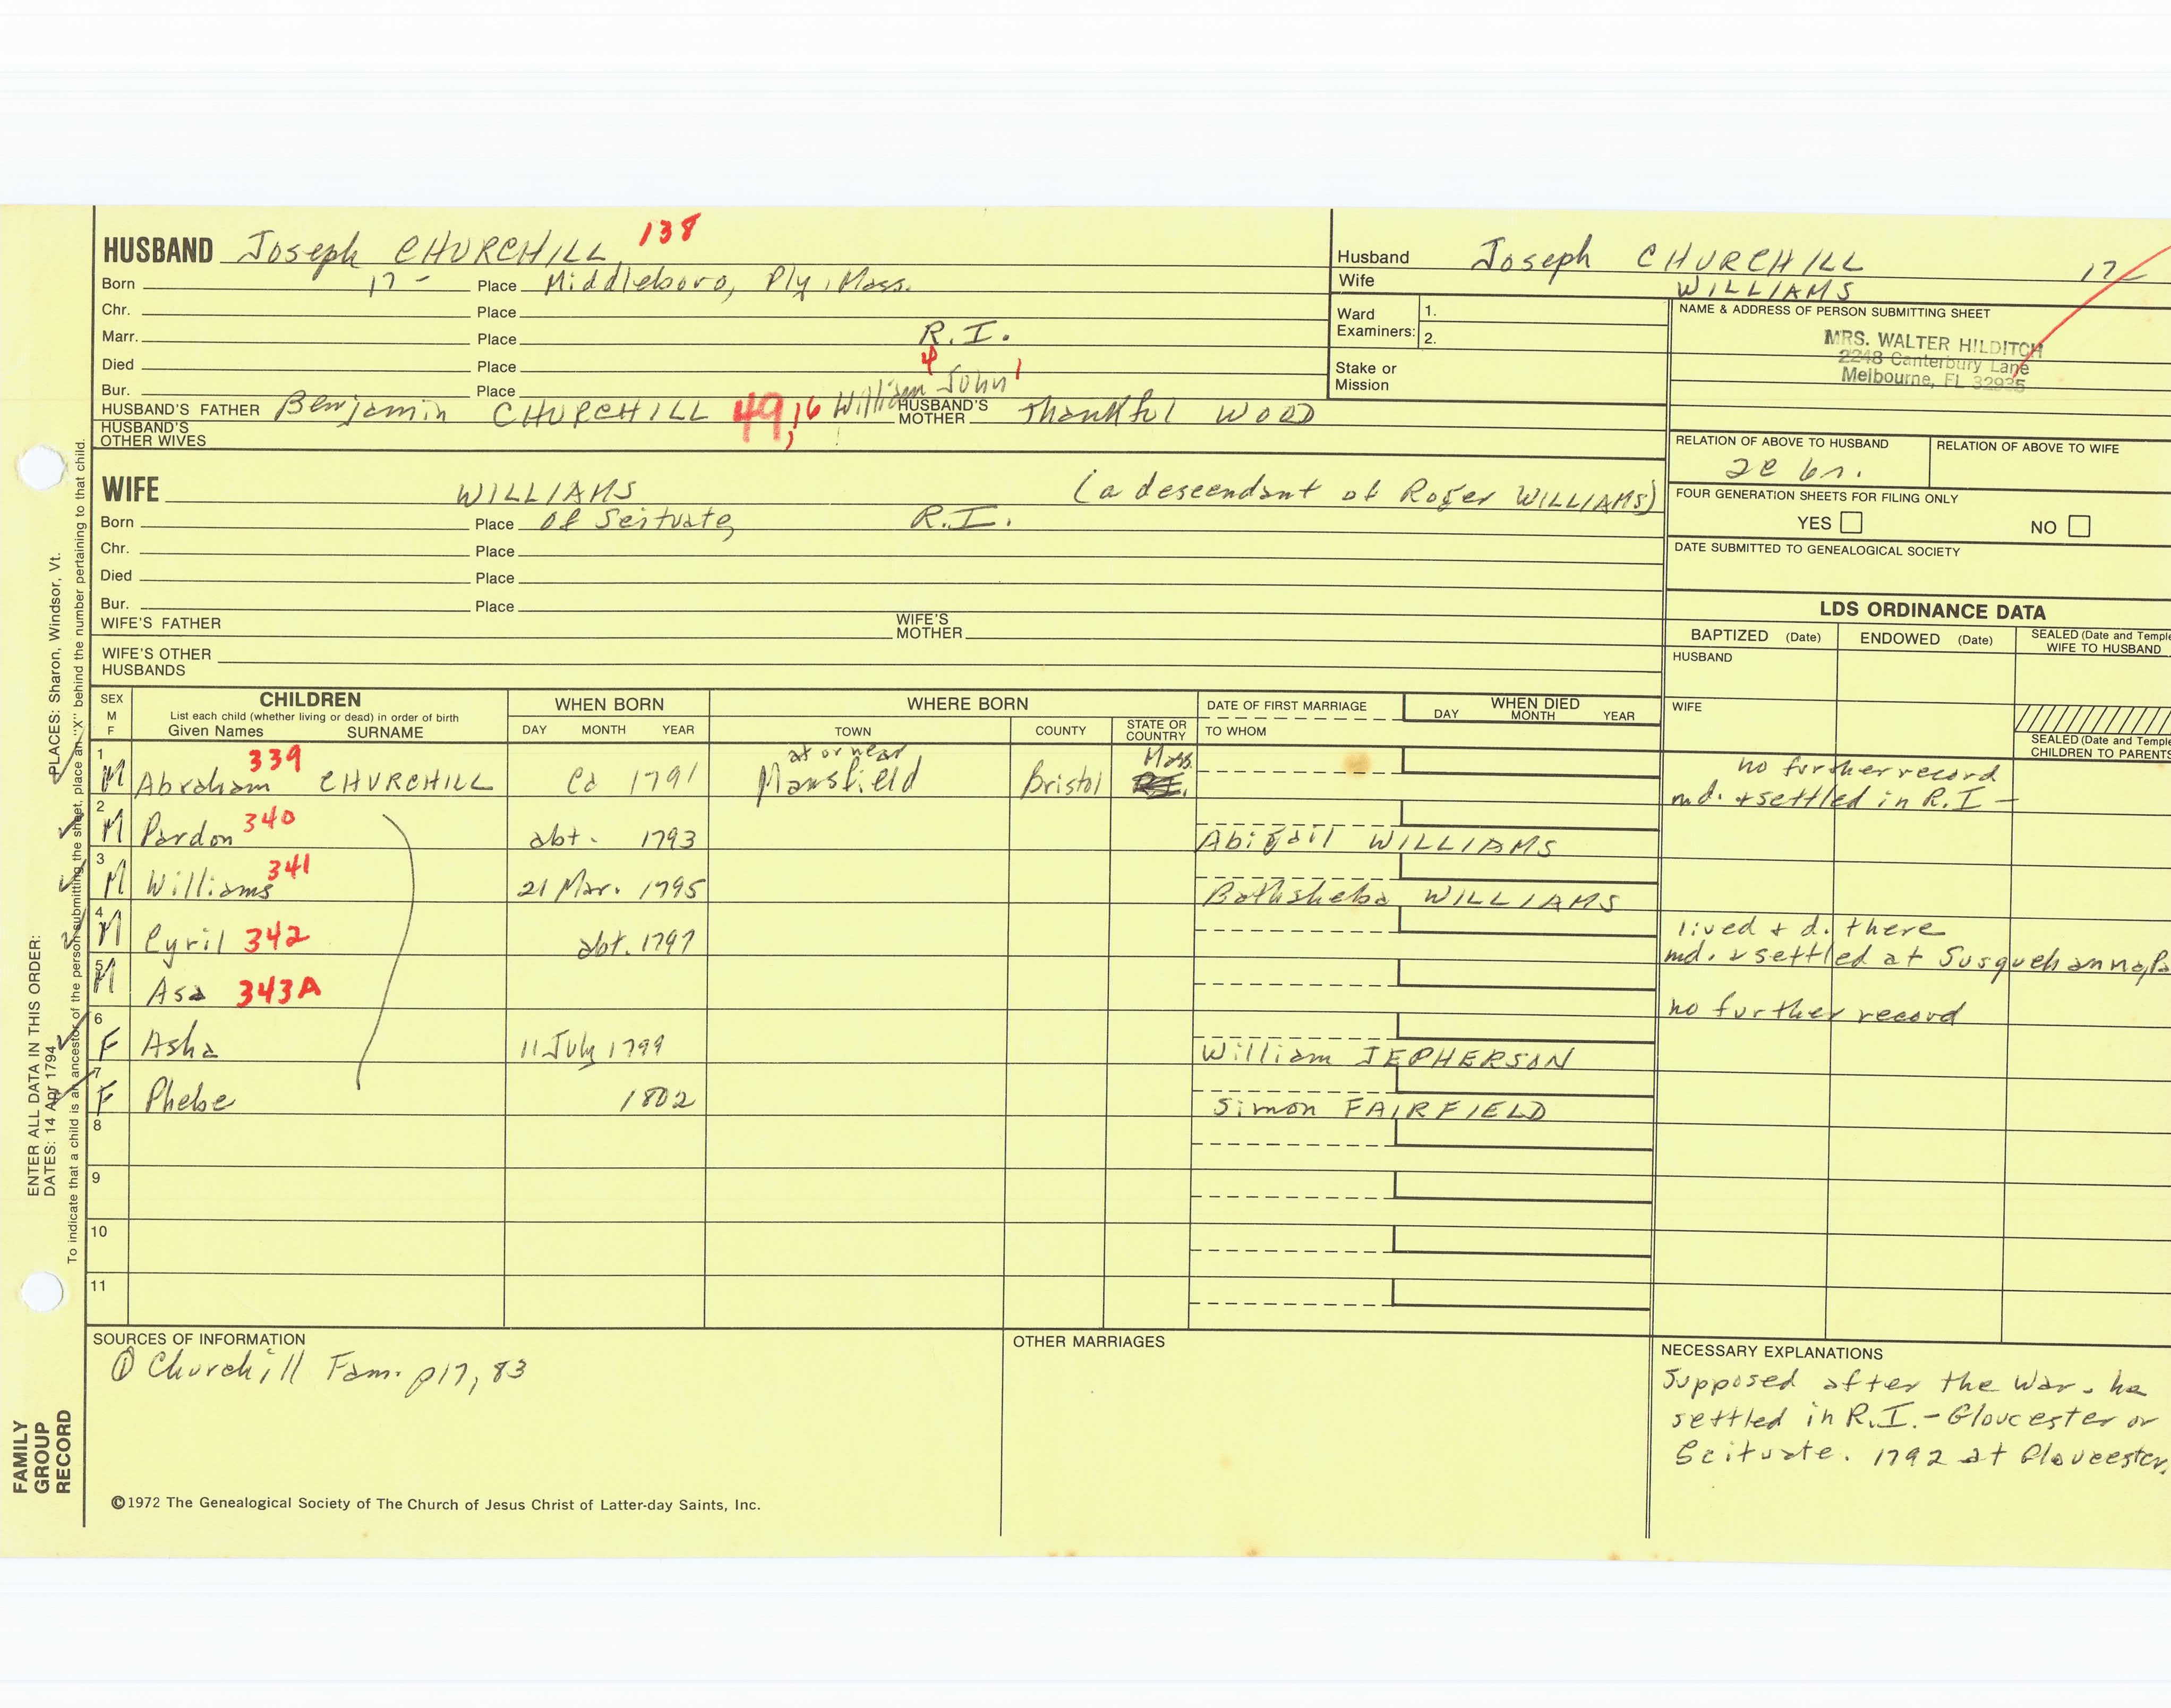 HUSBAND Joseph CHURCHILL 138
Born 17 - Place Middleboro, Ply, Mass.
Chr. Place
Marr. Place R.I.
Died Place
Bur. Place
4 William John 1
HUSBAND'S FATHER Benjamin CHURCHILL 49, 16 HUSBAND'S MOTHER Thankful WOOD
HUSBAND'S OTHER WIVES
WIFE WILLIAMS (a descendant of Roger WILLIAMS)
Born Place of Scituate, R.I.
Chr. Place
Died Place
Bur. Place
WIFE'S FATHER WIFE'S MOTHER
WIFE'S OTHER HUSBANDS
Husband Joseph CHURCHILL 17
Wife WILLIAMS
Ward Examiners: 1.
2.
Stake or Mission
NAME & ADDRESS OF PERSON SUBMITTING SHEET
MRS. WALTER HILDITCH
2248 Canterbury Lane
Melbourne, FL 32935
RELATION OF ABOVE TO HUSBAND RELATION OF ABOVE TO WIFE
FOUR GENERATION SHEETS FOR FILING ONLY
YES NO
DATE SUBMITTED TO GENEALOGICAL SOCIETY
LDS ORDINANCE DATA
BAPTIZED (Date) ENDOWED (Date) SEALED (Date and Temple
WIFE TO HUSBAND
HUSBAND
WIFE
SEALED (Date and Temple
CHILDREN TO PARENTS
SEX M F CHILDREN WHEN BORN WHERE BORN DATE OF FIRST MARRIAGE WHEN DIED
List each child (whether living or dead) in order of birth
Given Names SURNAME DAY MONTH YEAR TOWN COUNTY STATE OR COUNTRY TO WHOM DAY MONTH YEAR
1 M Abraham 339 CHURCHILL Ca 1791 at or near Mansfield Bristol Mass. no further record
md. & settled in R.I -
2 M Pardon 340 abt. 1793 Abigail WILLIAMS
3 M Williams 341 21 Mar. 1795 Bathsheba WILLIAMS
4 M Cyril 342 abt. 1797 lived & d. there
md. & settled at Susquehanna, Pa
5 M Asa 343A no further record
6 F Asha 11 July 1799 William JEPHERSON
7 F Phebe 1802 Simon FAIRFIELD
8
9
10
11
SOURCES OF INFORMATION
① Churchill Fam. p17, 83
OTHER MARRIAGES
NECESSARY EXPLANATIONS
Supposed after the War - he
settled in R.I. - Gloucester or
Scituate. 1792 at Gloucester.
©1972 The Genealogical Society of The Church of Jesus Christ of Latter-day Saints, Inc.
FAMILY GROUP RECORD
ENTER ALL DATA IN THIS ORDER:
DATES: 14 Apr 1794
PLACES: Sharon, Windsor, Vt.
To indicate that a child is an ancestor of the person submitting the sheet, place an "X" behind the number pertaining to that child.